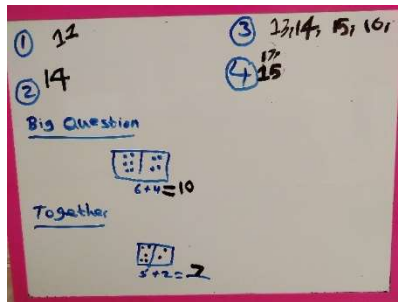 ①
③ 13, 14, 15, 16,
17,
② 14
④ 15
Big Question
6 + 4 = 10
Together
5 + 2 = 7